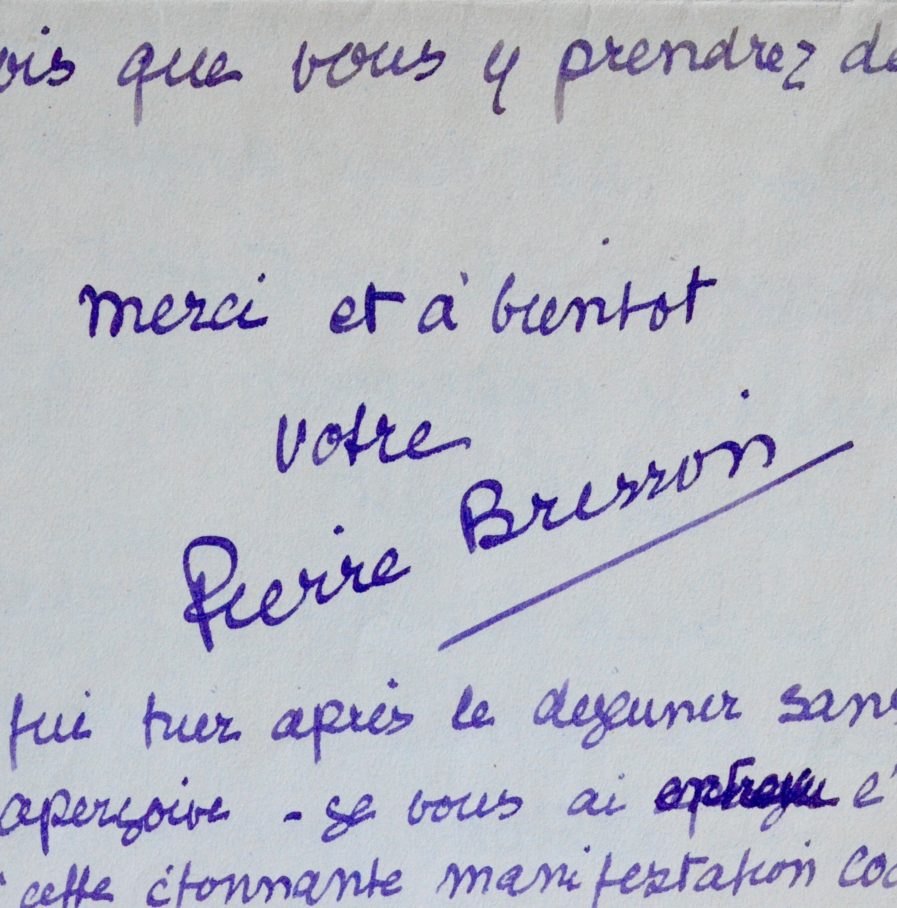 ois que vous y prendrez de
merci et à bientot
votre
Pierre Bresson
fui hier après le dejeuner sans
aperçoive - je vous ai entrevu
cette étonnante manifestation coc